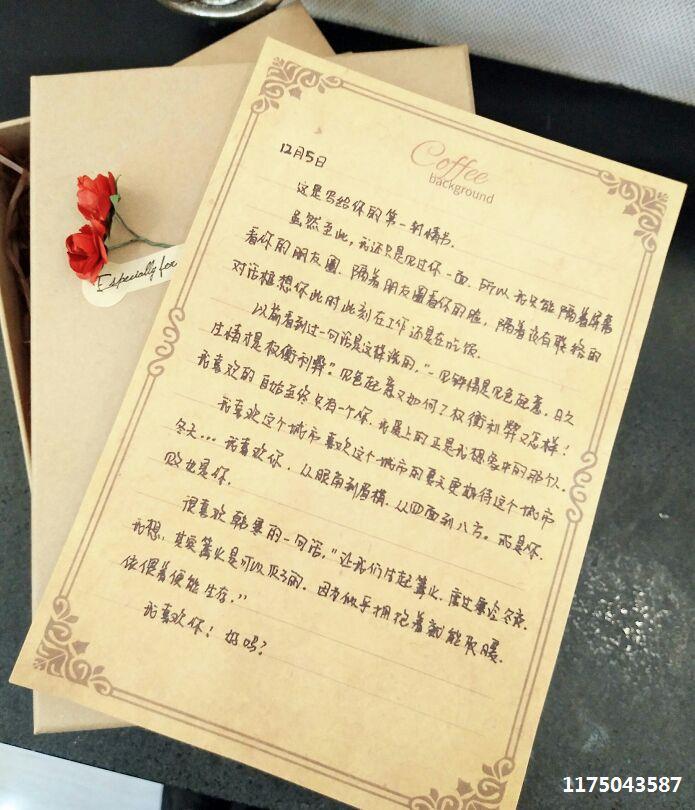 Coffee
background
12月5日
这是写给你的第一封情书.
虽然至此,我还只是见过你一面.所以我只能隔着屏幕
看你的朋友圈.隔着朋友圈看你的脸,隔着没有联络的
对话框想你此时此刻在工作还是在吃饭.
以前看到过一句话是这样说的."一见钟情是见色起意.日久
生情才是权衡利弊".见色起意又如何?权衡利弊又怎样!
我喜欢的自始至终只有一个你.我爱上的正是我想象中的那个人.
我喜欢这个城市喜欢这个城市的夏天更期待这个城市
冬天...我喜欢你.从眼角到眉梢.从四面到八方.成是你.
败也是你.
很喜欢韩寒的一句话."让我们生起篝火.度过寒冷冬夜.
我想.其实篝火是可以灭了的.因为似乎拥抱着就能取暖.
依偎着便能生存."
我喜欢你!好吗?
Especially for
1175043587